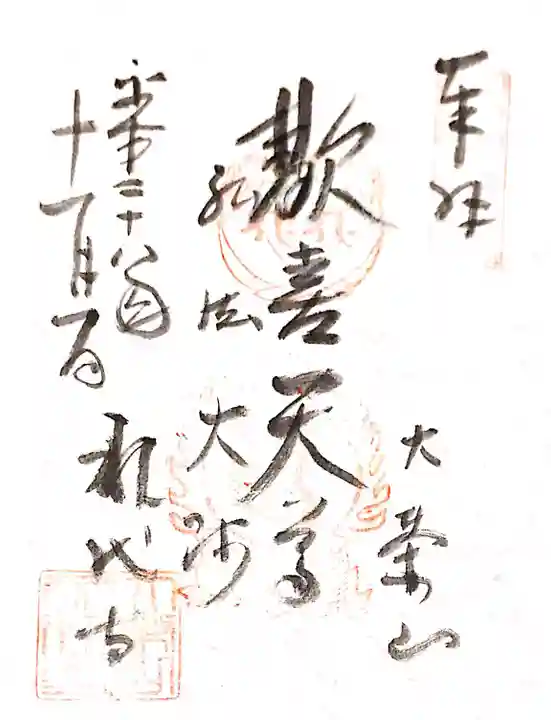 奉拝
大栄山
歓喜天尊
弘法大師
平成二十八年
十一月
永代寺